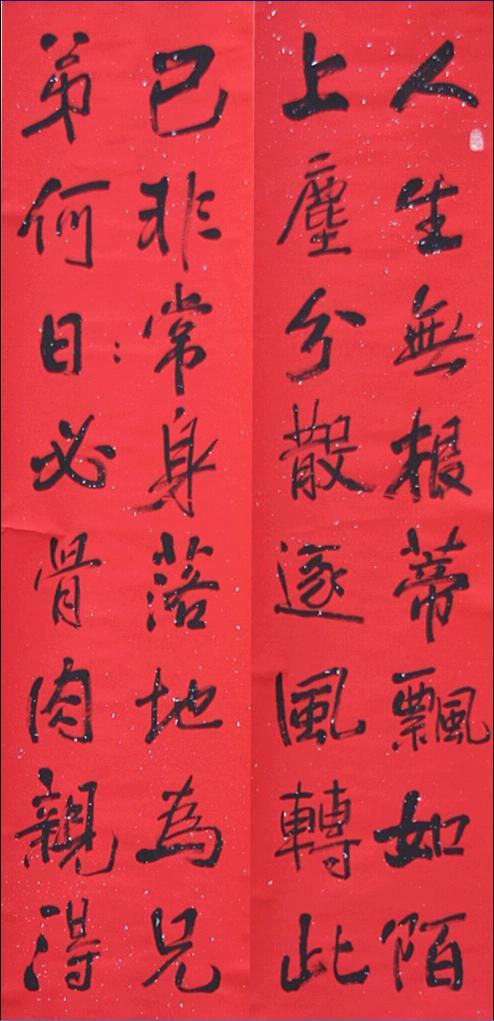 人生無根蒂飄如陌
上塵分散逐風轉此
已非常身落地為兄
弟何日必骨肉親得